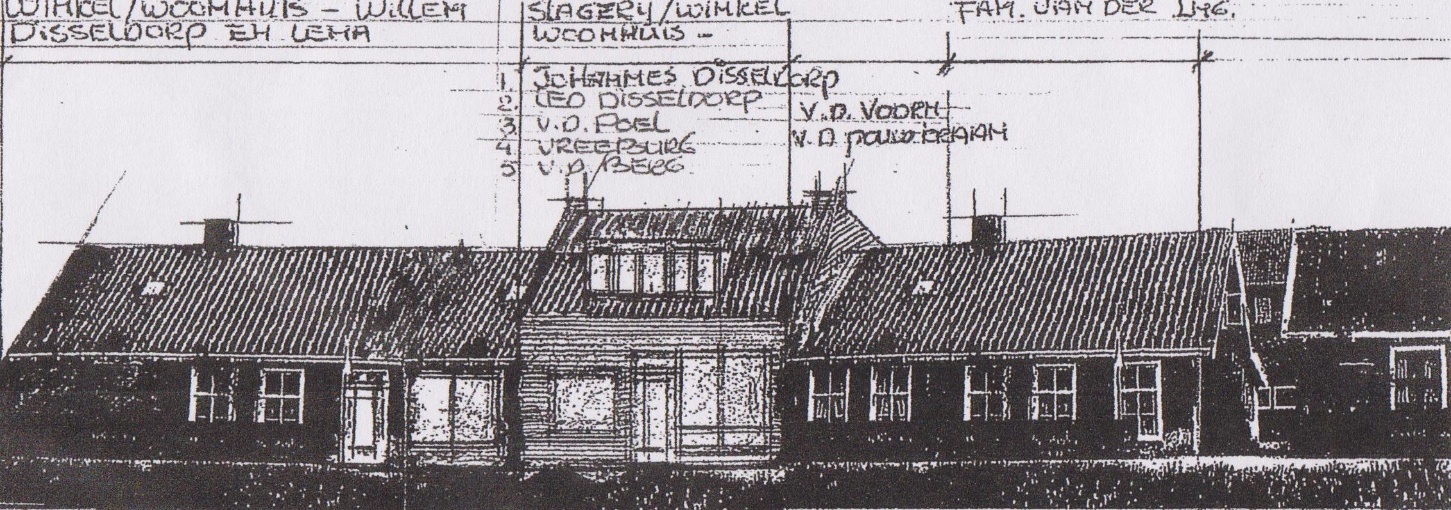 WINKEL/WOONHUIS - WILLEM
DISSELDORP EN LENA
SLAGERIJ/WINKEL
WOONHUIS -
1. JOHANNES DISSELDORP
2. LEO DISSELDORP
3. V.D. POEL
4. VREEBURG
5. V.D. BERG
V.D. VOORN
V.D
FAM. VAN DER